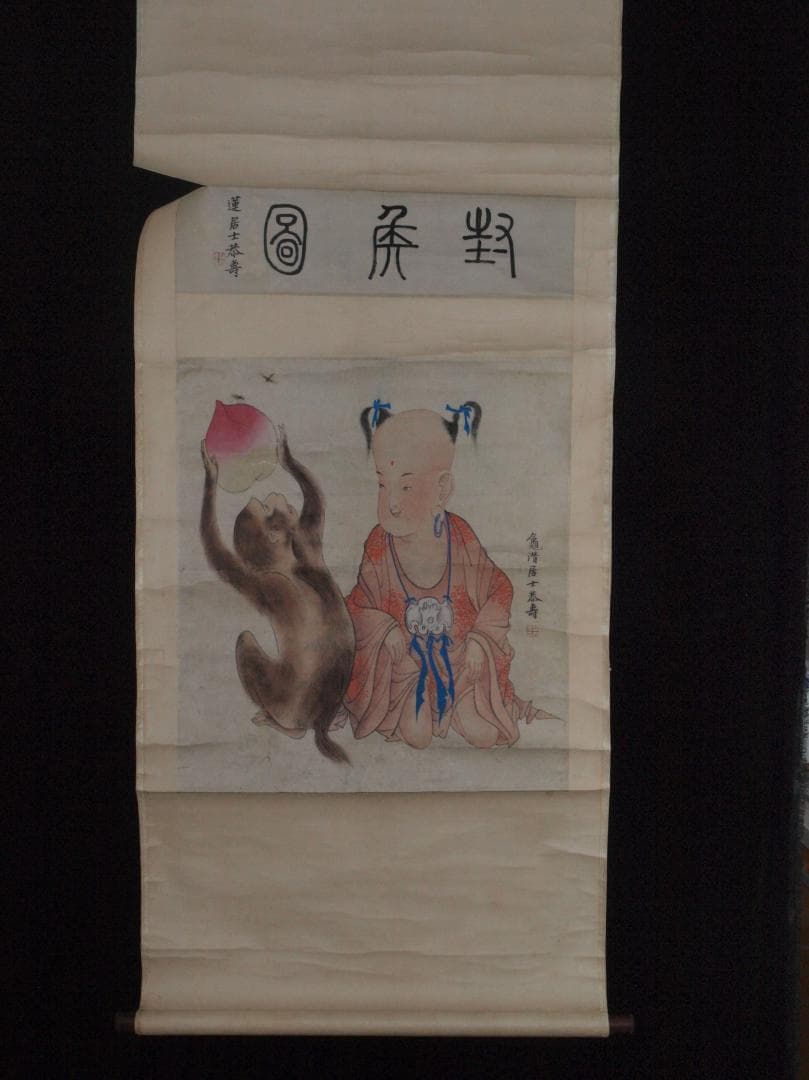 封矦圖
蓮居士恭壽
潛居士恭壽